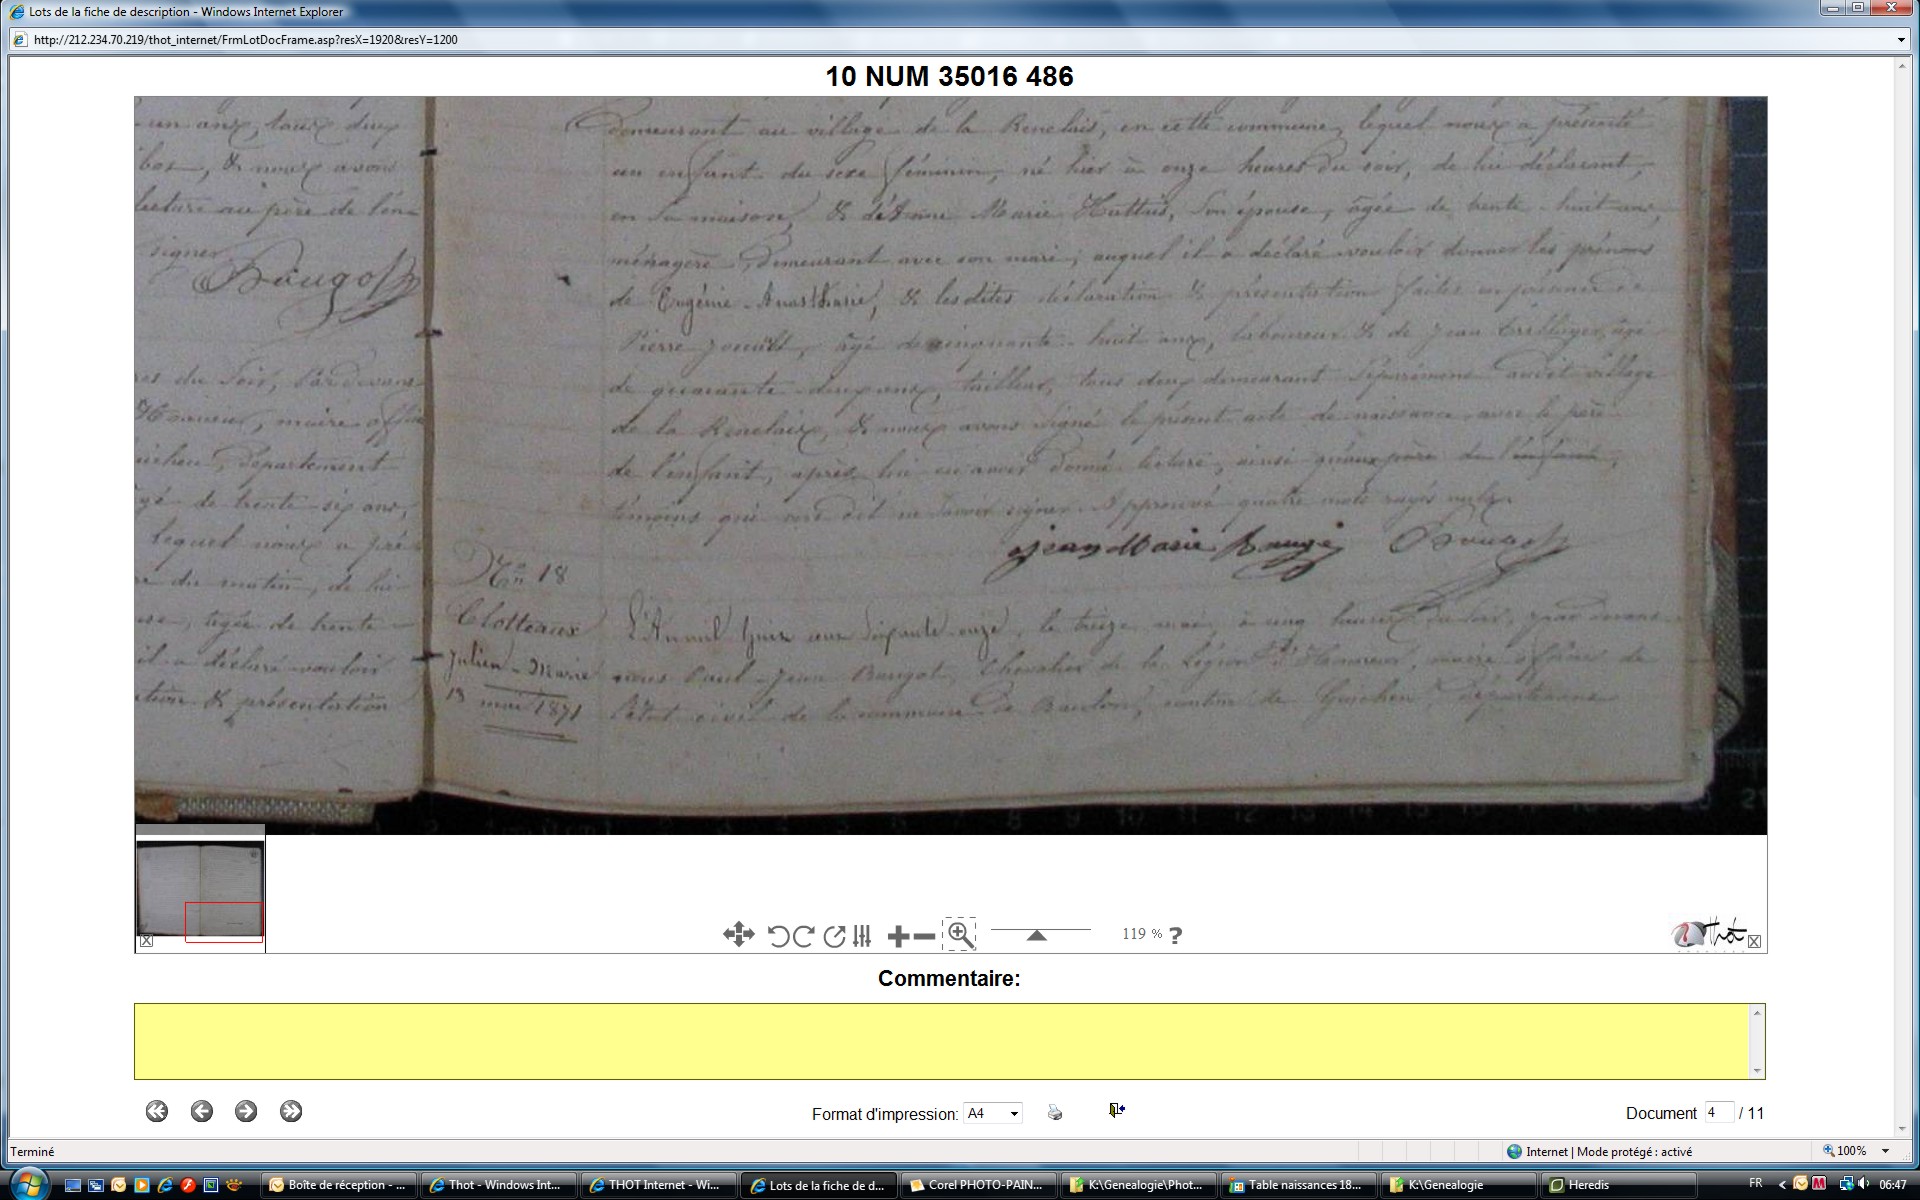 Lots de la fiche de description - Windows Internet Explorer
http://212.234.70.219/thot_internet/FrmLotDocFrame.asp?resX=1920&resY=1200
10 NUM 35016 486
un ans, tous deux
& nous avons
lecture au père de l'en-
signer
Bougot
res du soir, Pardevant
d'Honneur, maire officier
Guichen, département
âgé de trente six ans,
lequel nous a pré-
du matin, de lui
âgée de trente-
il a déclaré vouloir
ation & présentation
demeurant au village de la Renelais, en cette commune, lequel nous a présenté
un enfant du sexe féminin, né hier à onze heures du soir, de lui déclarant,
en sa maison, & de Marie Huttus, son épouse, âgée de trente-huit ans,
ménagère, demeurant avec son mari, auquel il a déclaré vouloir donner les prénoms
de Eugénie-Anasthasie, & lesdites déclaration & présentation faites en présence de
Pierre âgé de cinquante-huit ans, laboureur & de Jean âgé
de quarante-deux ans, tailleur, tous deux demeurant séparément audit village
de la Renelais, & nous avons signé le présent acte de naissance avec le père
de l'enfant, après lui en avoir donné lecture, ainsi qu'aux père de l'enfant,
témoins qui ont dit ne savoir signer. Approuvé quatre mots rayés nuls.
Jean Marie Bougot
N° 18
Clotteaux
Julien-Marie
13 mai 1871
L'An mil huit cent soixante onze, le treize mai, à cinq heures du soir, par devant
nous Paul-Jean Bougot, Chevalier de la Légion d'Honneur, maire officier de
l'état civil de la commune de Baulon, canton de Guichen, département
119 % ?
Thot
Commentaire:
Format d'impression: A4
Document 4 / 11
Terminé
Internet | Mode protégé : activé
100%
Boîte de réception - ...
Thot - Windows Int...
THOT Internet - Wi...
Lots de la fiche de d...
Corel PHOTO-PAIN...
K:\Genealogie\Phot...
Table naissances 18...
K:\Genealogie
Heredis
FR
06:47